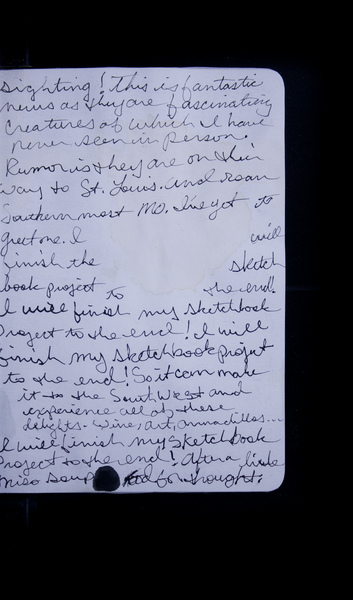 sighting! This is fantastic
news as they are fascinating
creatures of which I have
never seen in person.
Rumor is they are on their
way to St. Louis. and roam
Southern most MO. I've yet to
greet one. I will
finish the sketch
book project to the end.
I will finish my sketchbook
Project to the end! I will
finish my sketchbook projet
to the end! So it can make
it to the SouthWest and
experience all of these
delights. Wine, art, armadillos...
I will finish my sketchbook
Project to the end! After a little
miso soup for thought.